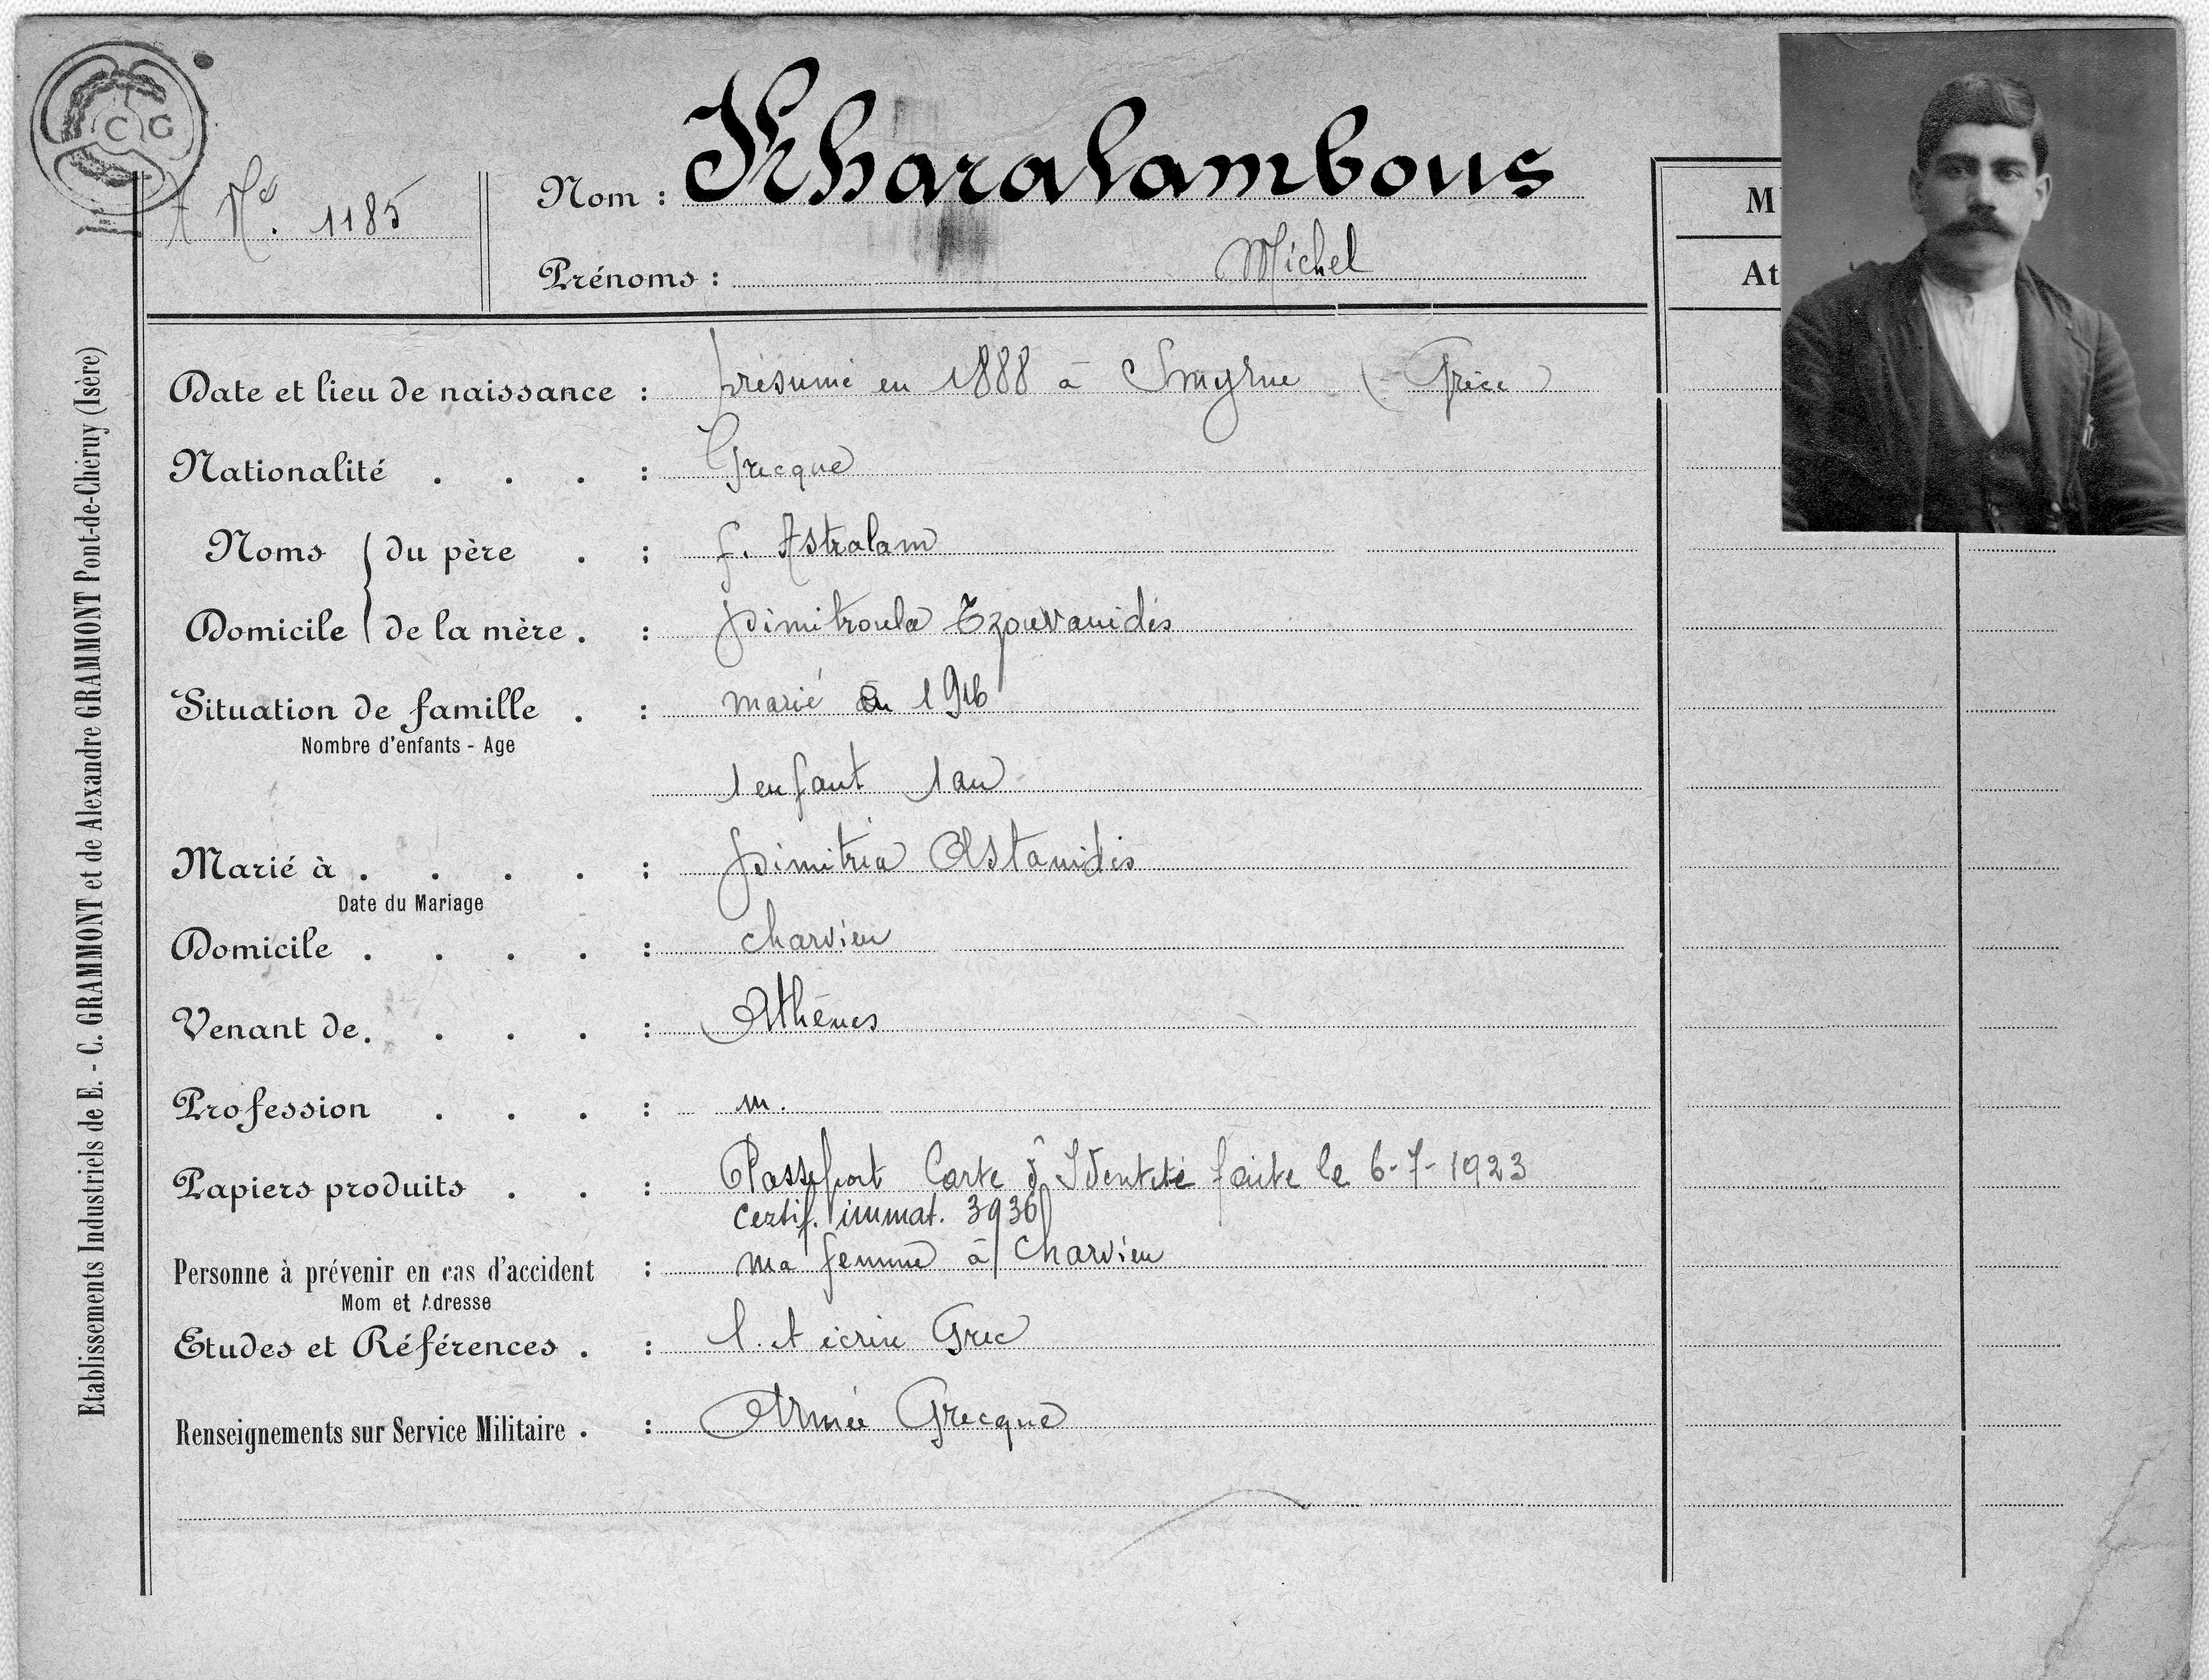 C G
Nº. 1185
Nom : Kharalambous
Prénoms : Michel
M
At
Date et lieu de naissance : présumé en 1888 à Smyrne (Grèce)
Nationalité . . . : Grecque
Noms du père . : f. Astralam
Domicile de la mère . : Dimitroula Tzouvanidès
Situation de famille . : marié en 1916
Nombre d'enfants - Age
1 enfant 1 an
Marié à . . . . : Dimitria Astanidis
Date du Mariage
Domicile . . . . : charvieu
Venant de. . . . : Athènes
Profession . . . : m.
Papiers produits . . : Passeport Carte d'Identité faite le 6-7-1923
certif. immat. 3936
Personne à prévenir en cas d'accident : ma femme à Charvieu
Mom et Adresse
Etudes et Références . : l. et écrire Grec
Renseignements sur Service Militaire . : Armée Grecque
Etablissements Industriels de E. - C. GRAMMONT et de Alexandre GRAMMONT Pont-de-Chéruy (Isère)